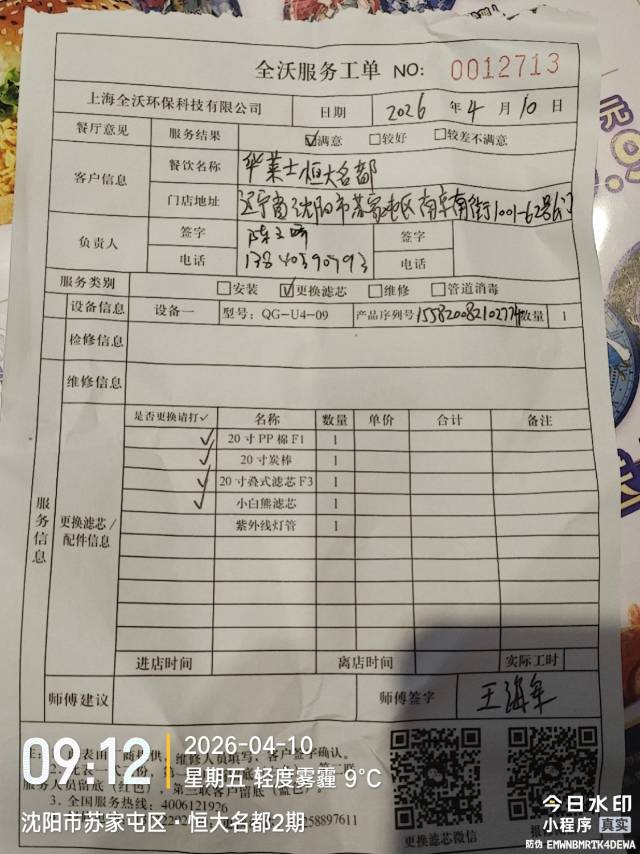 全沃服务工单 NO: 0012713
上海全沃环保科技有限公司 日期 2026 年 4 月 10 日
餐厅意见 服务结果 ☑满意 □较好 □较差不满意
客户信息 餐饮名称 华莱士恒大名都
门店地址 辽宁省沈阳市苏家屯区南京南街1001-62号
负责人 签字 签字
电话 电话
服务类别 □安装 ☑更换滤芯 □维修 □管道消毒
设备信息 设备一 型号: QG-U4-09 产品序列号 数量 1
检修信息
维修信息
服务信息
更换滤芯/配件信息
是否更换请打✓ 名称 数量 单价 合计 备注
✓ 20寸PP棉F1 1
✓ 20寸炭棒 1
✓ 20寸叠式滤芯F3 1
✓ 小白熊滤芯 1
紫外线灯管 1
进店时间 离店时间 实际工时
师傅建议 师傅签字
维修人员填写,客户签字确认。
服务人员留底(红色)
3.全国服务热线:4006121926
更换滤芯微信
09:12
2026-04-10
星期五 轻度雾霾 9°C
沈阳市苏家屯区·恒大名都2期
今日水印
小程序 真实
防伪 EMWNBMRTK4DEWA